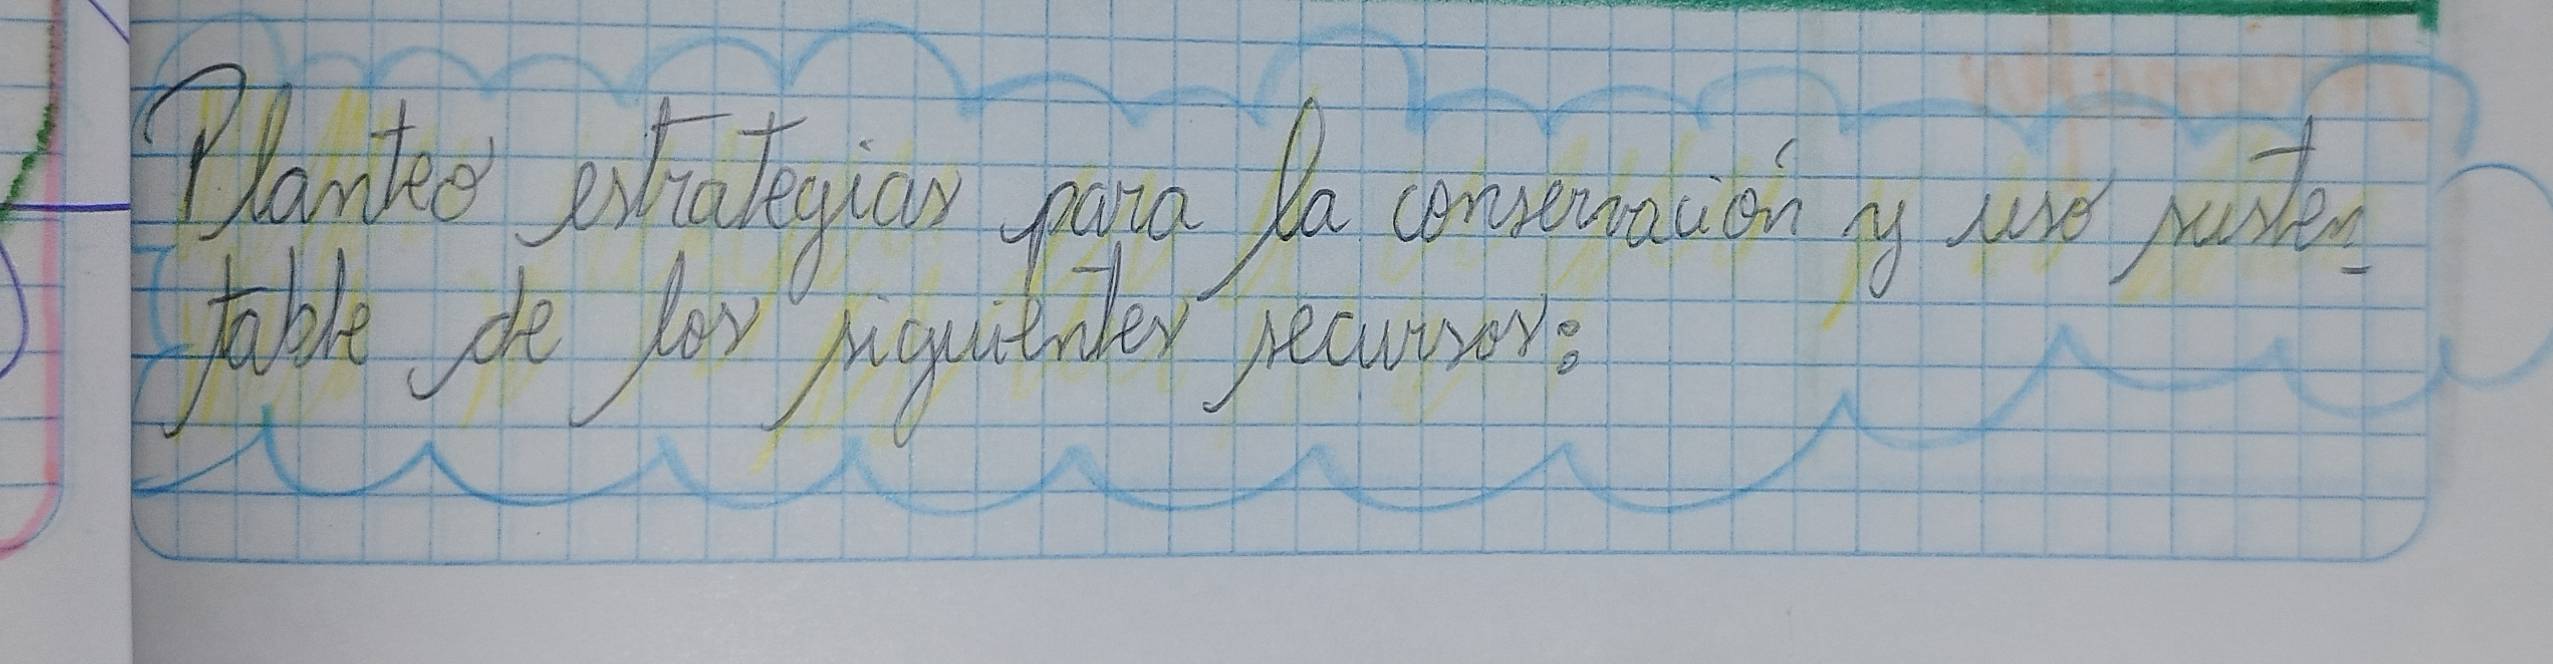 Planteo estrategias para la conservación y uso susten-
table de los siguientes recursos: